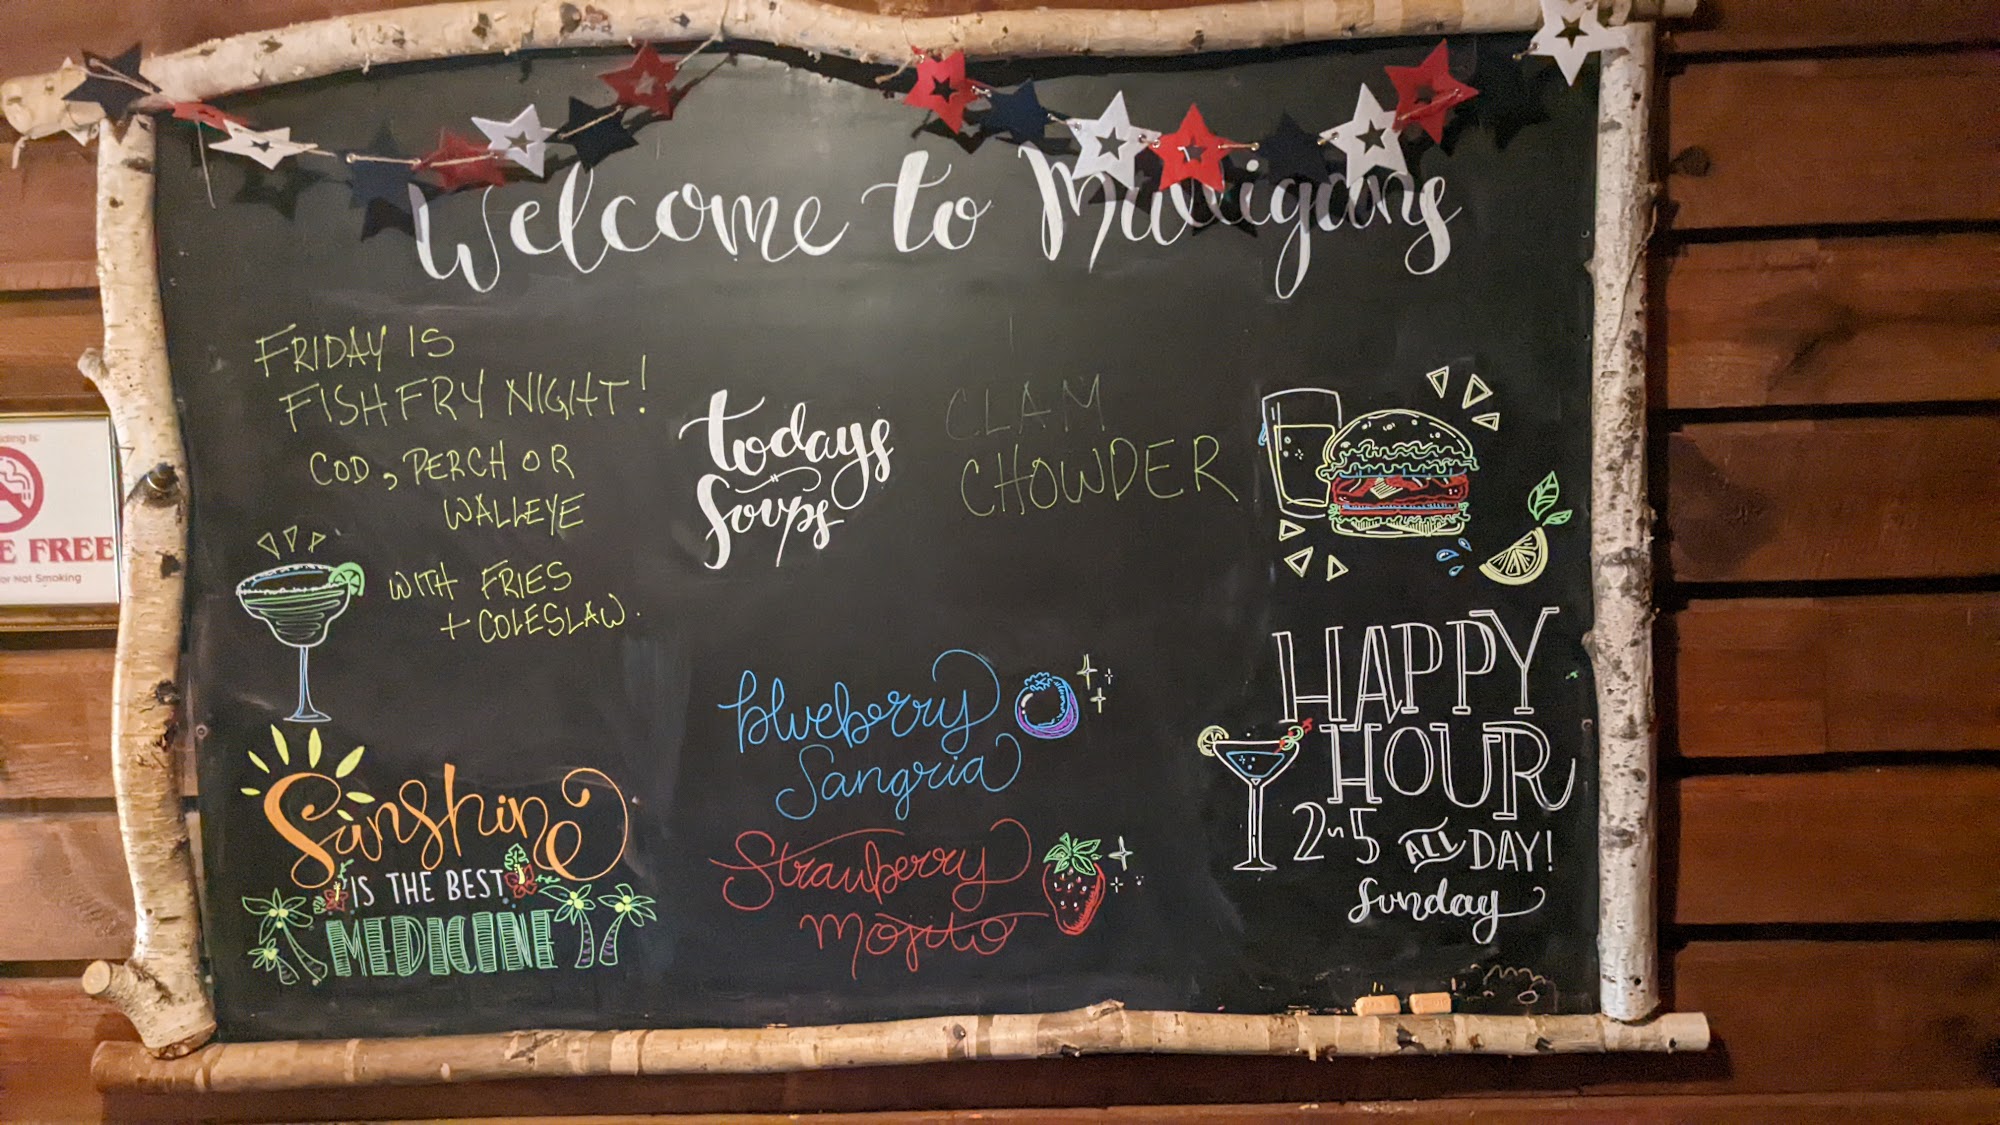 Welcome to Mulligans
FRIDAY IS
FISH FRY NIGHT!
COD, PERCH OR
WALLEYE
WITH FRIES
+ COLESLAW.
todays
Soups
CLAM
CHOWDER
blueberry
Sangria
Strawberry
Mojito
Sunshine
IS THE BEST
MEDICINE
HAPPY
HOUR
2-5 ALL DAY!
Sunday
FREE
or Not Smoking